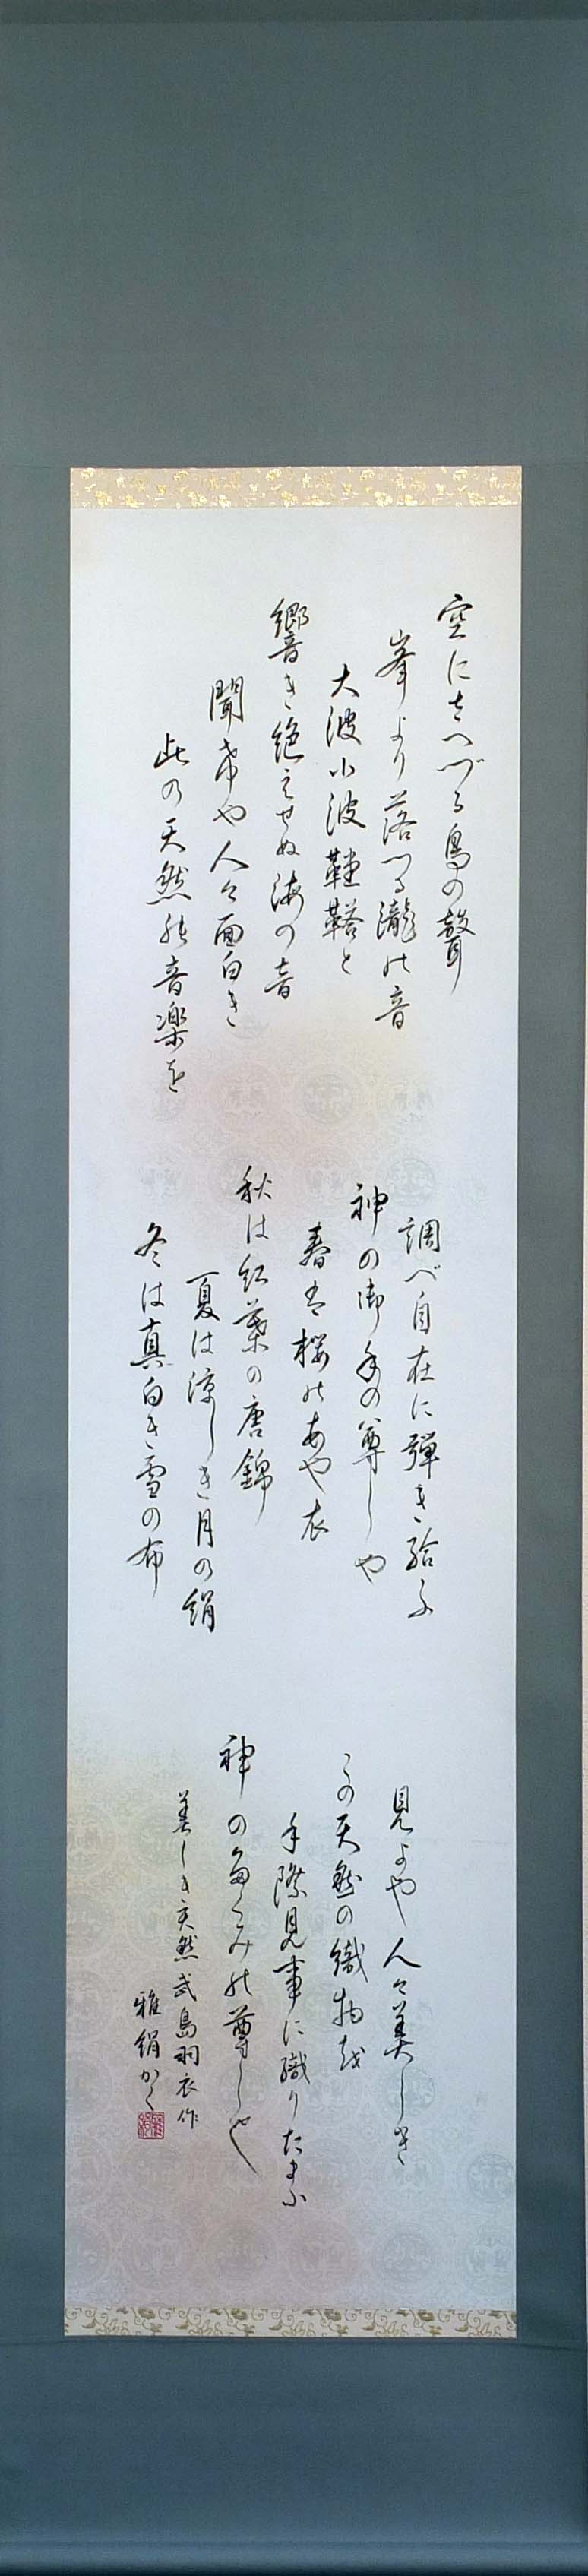 空にさへづる鳥の聲
峯より落つる瀧の音
大波小波鞺鞳と
響き絶えせぬ海の音
聞けや人々面白き
此の天然の音楽を
調べ自在に弾き給ふ
神の御手の尊しや
春は桜のあや衣
秋は紅葉の唐錦
夏は涼しき月の絹
冬は真白き雪の布
見よや人々美しき
この天然の織物を
手際見事に織りたまふ
神のたくみの尊しや
美しき天然 武島羽衣作
雅絹かく